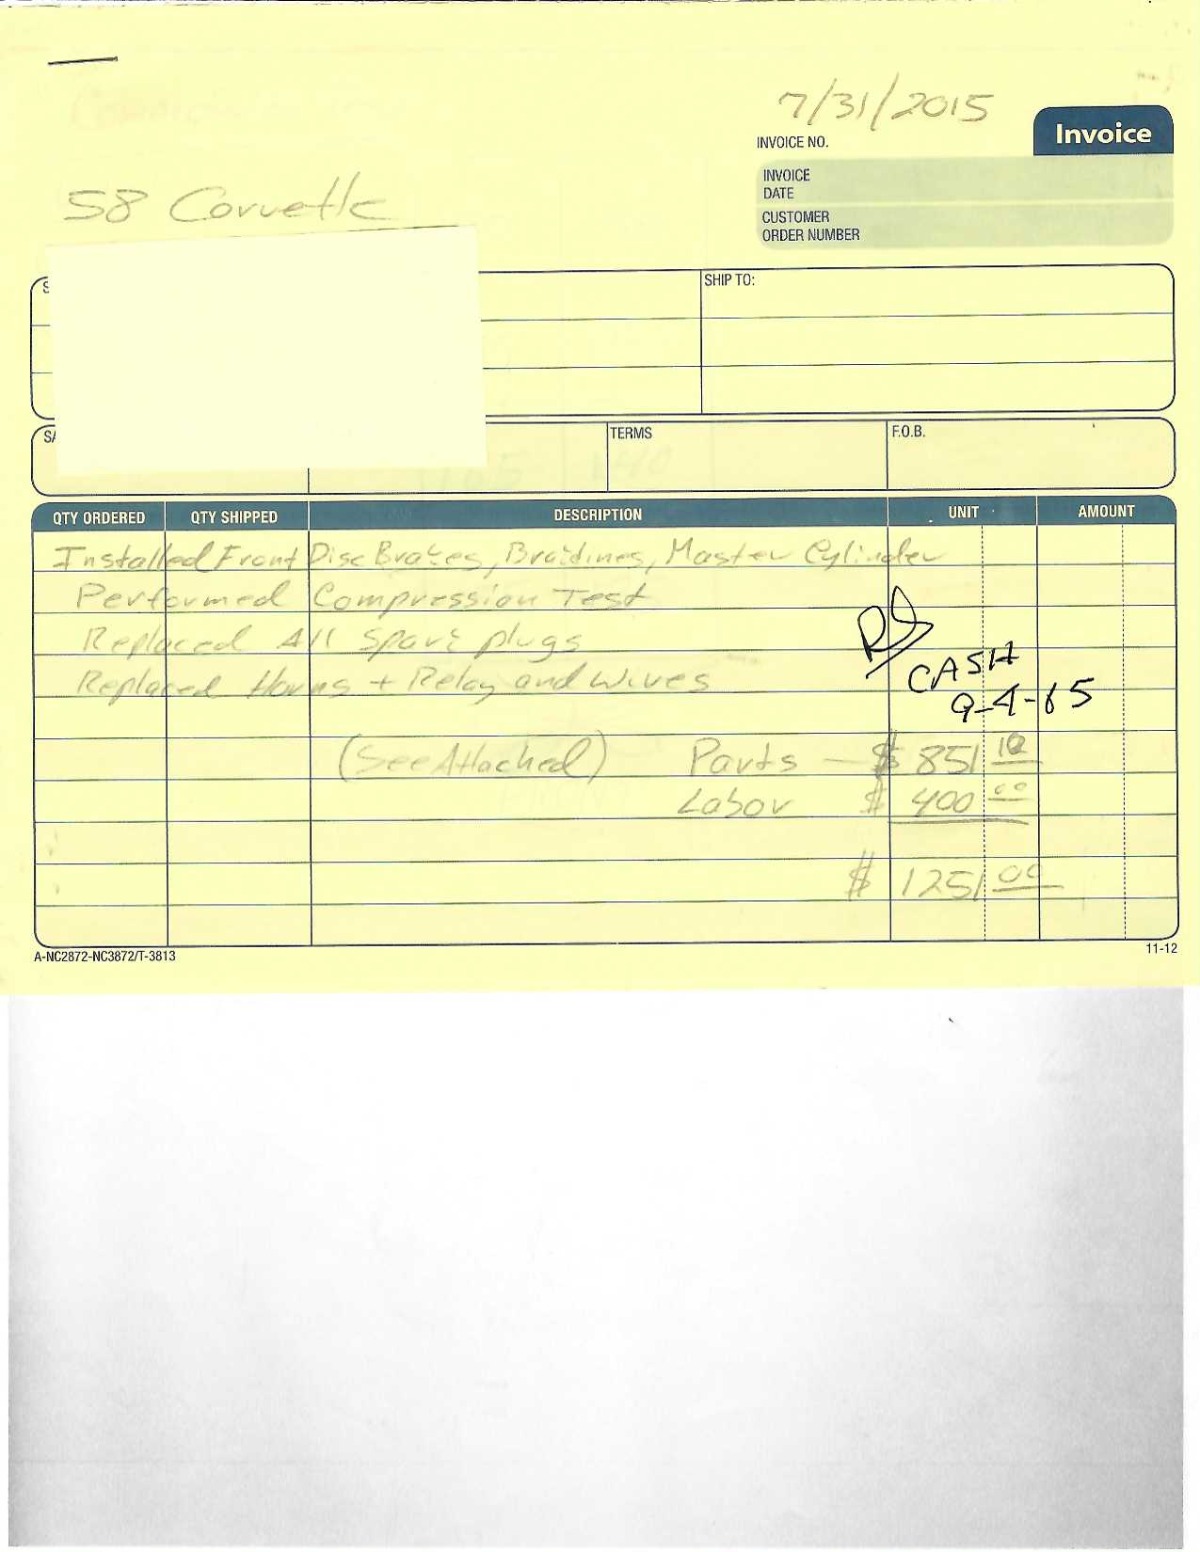 7/31/2015
Invoice
INVOICE NO.
INVOICE
DATE
58 Corvette
CUSTOMER
ORDER NUMBER
SHIP TO:
TERMS
F.O.B.
QTY ORDERED QTY SHIPPED DESCRIPTION UNIT AMOUNT
Installed Front Disc Brakes, Master Cylinder
Performed Compression Test
Replaced All Spark plugs
Replaced Horns + Relay and wires
CASH
(See Attached) Parts - $ 851
Labor $ 400 00
$ 1251 00
A-NC2872-NC3872/T-3813
11-12